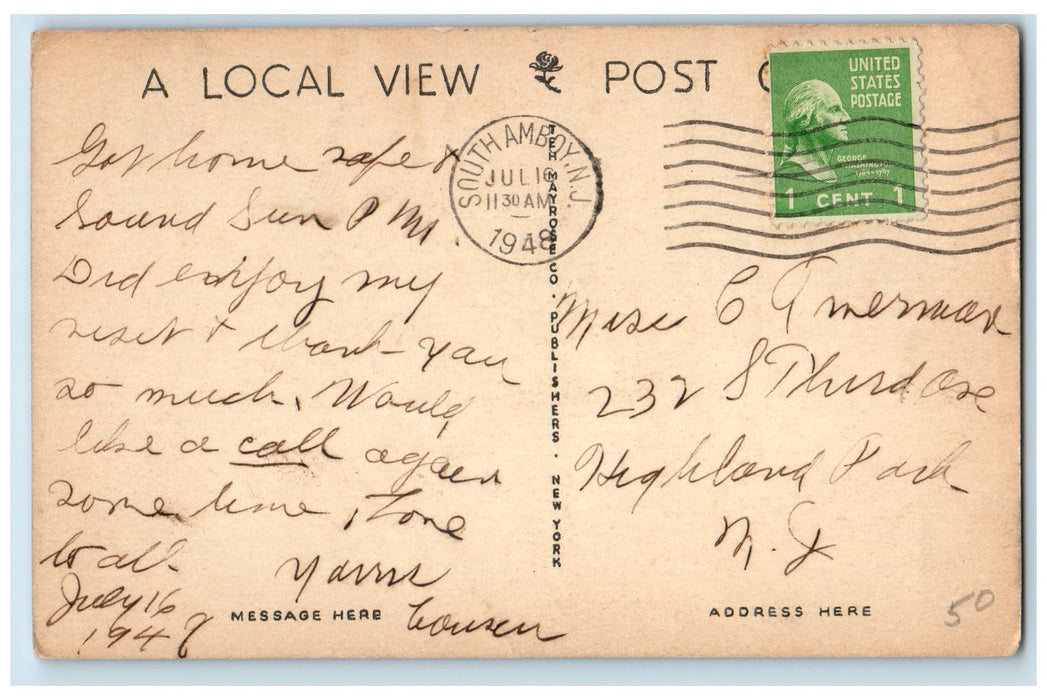 A LOCAL VIEW POST C
UNITED
STATES
POSTAGE
GEORGE
WASHINGTON
1 CENT 1
SOUTH AMBOY, N.J.
JUL 16
11 30 AM
1948
Got home safe &
Sound Sun P M.
Did enjoy my
visit & thank you
so much. Would
like a call again
some time, Love
to all.
Yours
Cousin
July 16
1948
MESSAGE HERE
THE MAYROSE CO. PUBLISHERS. NEW YORK
Miss C Amerman
232 S Third Ave
Highland Park
N. J
ADDRESS HERE
50